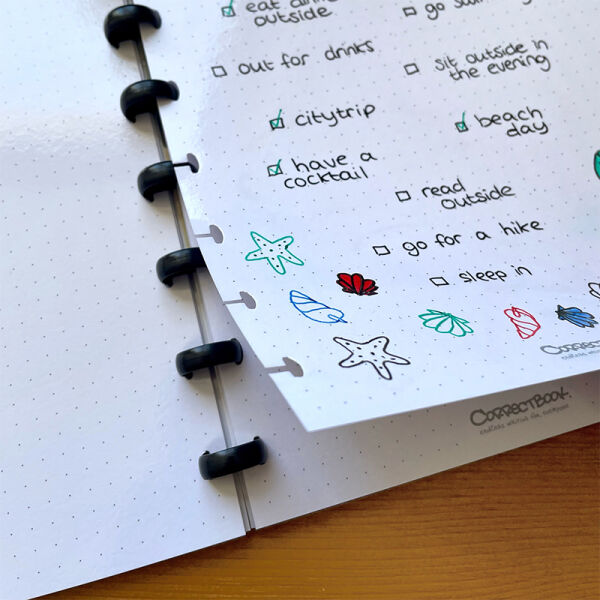 eat
outside
go
out for drinks
sit outside in
the evening
citytrip
beach
day
have a
cocktail
read
outside
go for a hike
sleep in
CORRECTBOOK.
endless writing for everyone